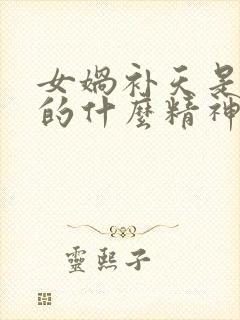 女媧补天是
的什麼精神
靈熙子